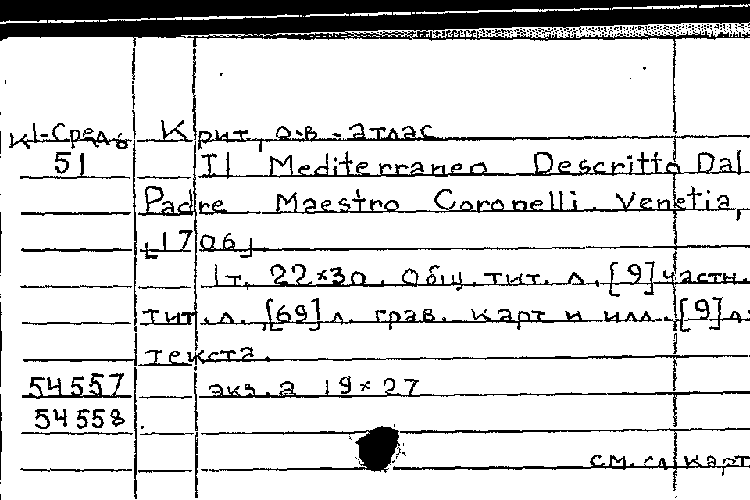 К1-Средь Крит, о-в - атлас
51 Il Mediterraneo Descritto Dal
Padre Maestro Coronelli. Venetia,
[1706].
1т. 22×30. Общ. тит. л., [9] частн.
тит. л., [69] л. грав. карт и илл., [9] л.
текста.
54557 экз. а 19×27
54558
см. сл. карт